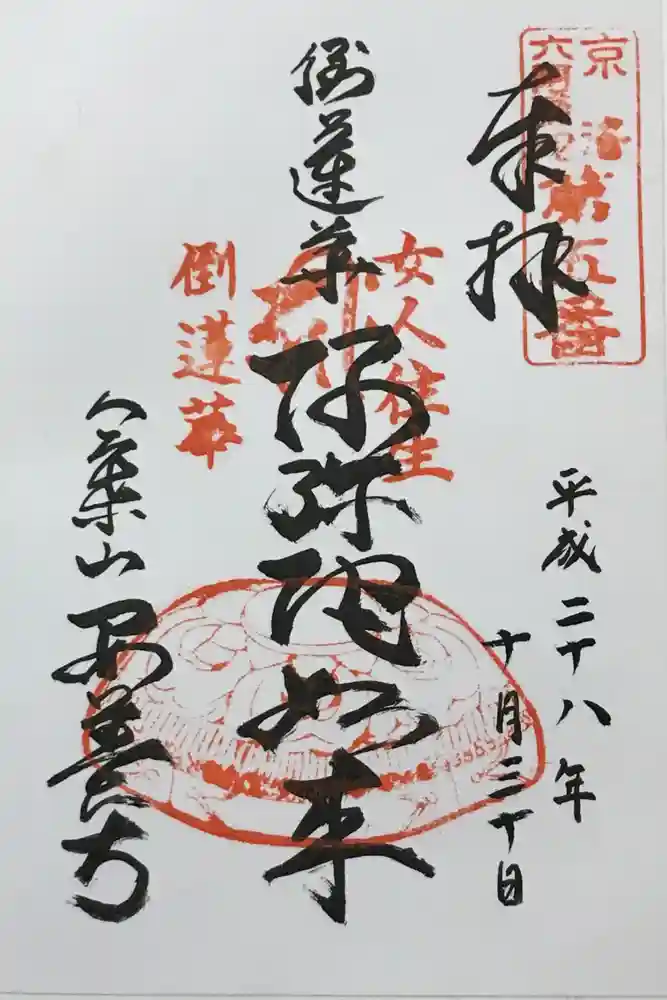 京洛
六阿弥陀
第五番
奉拝
平成二十八年
十月三十日
女人往生
倒蓮華
阿弥陀如来
倒蓮華
八葉山
安養寺